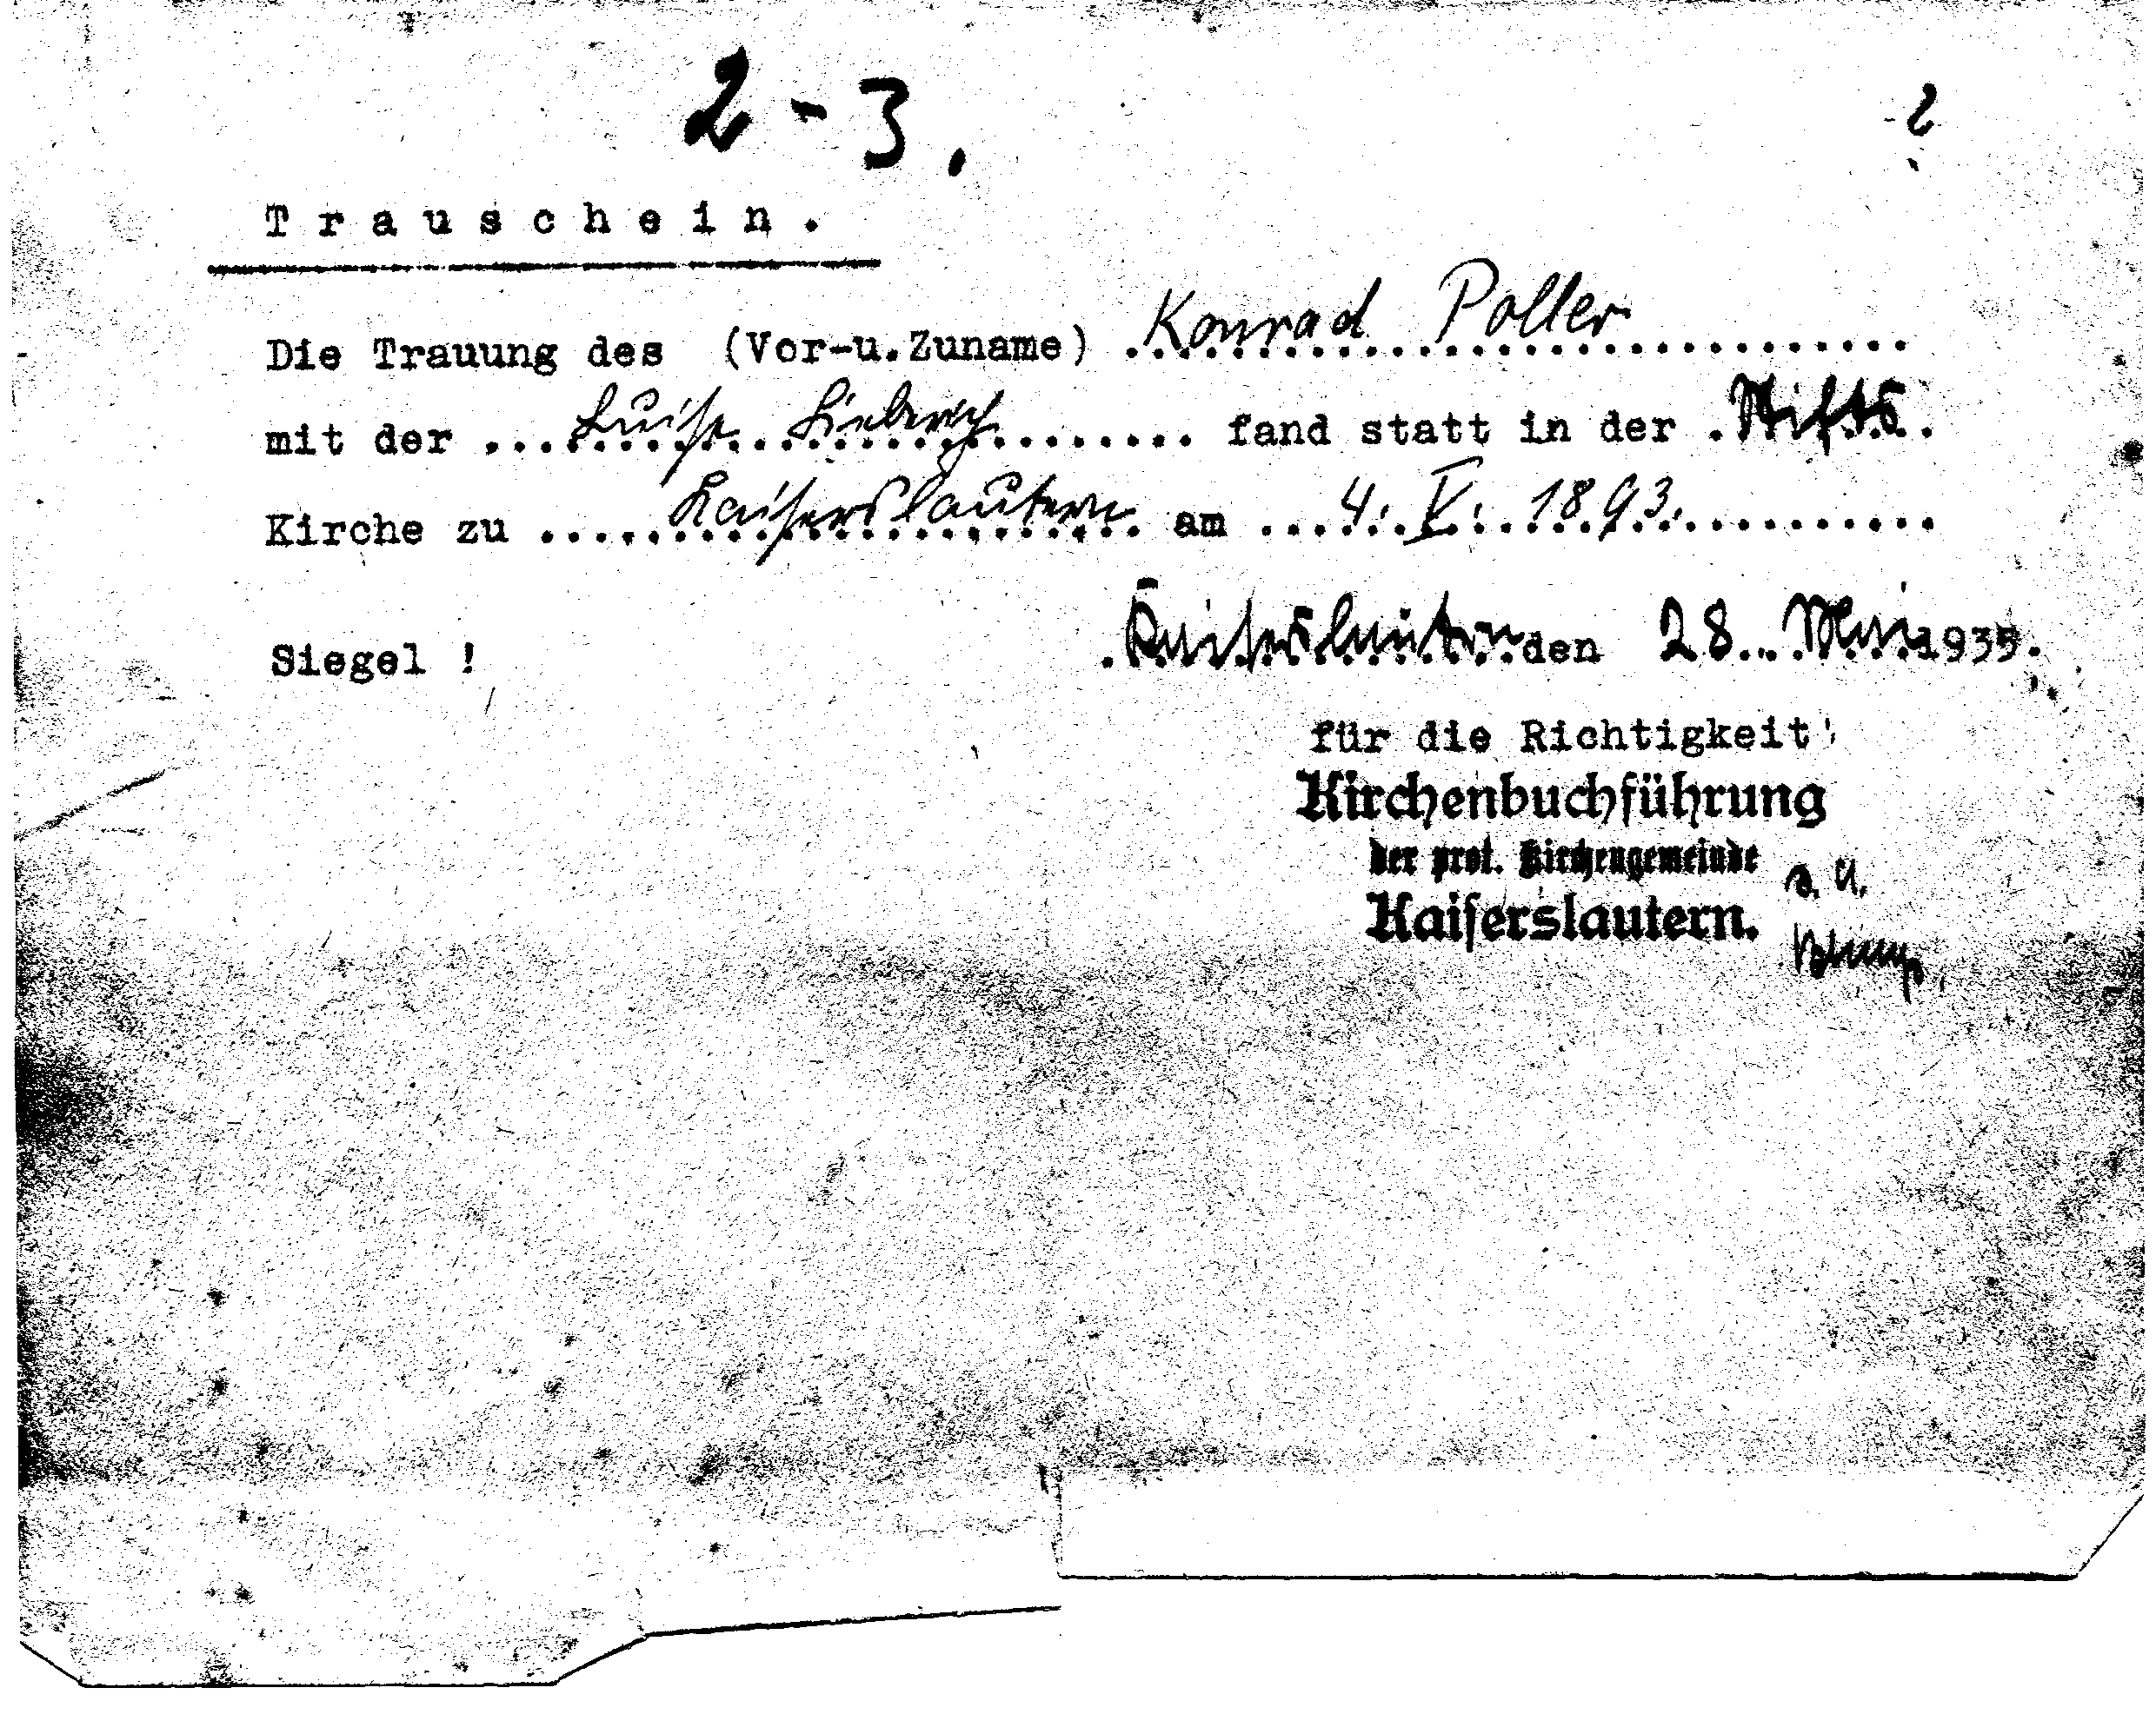 2-3.
2.
Trauschein.
Die Trauung des (Vor-u.Zuname) Konrad Poller
mit der Luise Lieberich fand statt in der Stifts
Kirche zu Kaiserslautern am 4. V. 1893.
Siegel ! Kaiserslautern den 28. Mai 1935.
für die Richtigkeit
Kirchenbuchführung
der prot. Kirchengemeinde
Kaiserslautern.